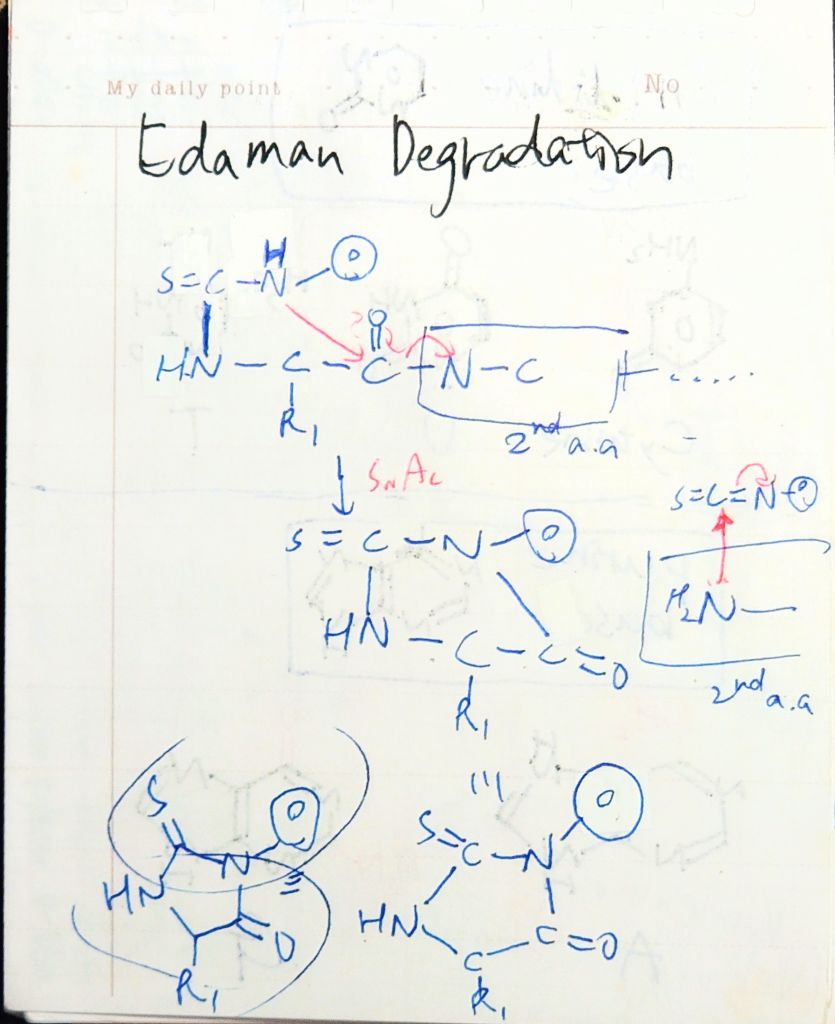 My daily point No
Edaman Degradation
H
S=C-N-
O
HN-C-C-N-C
R1
2nd a.a
SNAc
S=C=N-
S=C-N-
H2N-
HN-C-C=O
2nd a.a
R1
S
S=C-N-
N
HN
HN
C=O
O
C
R1
R1